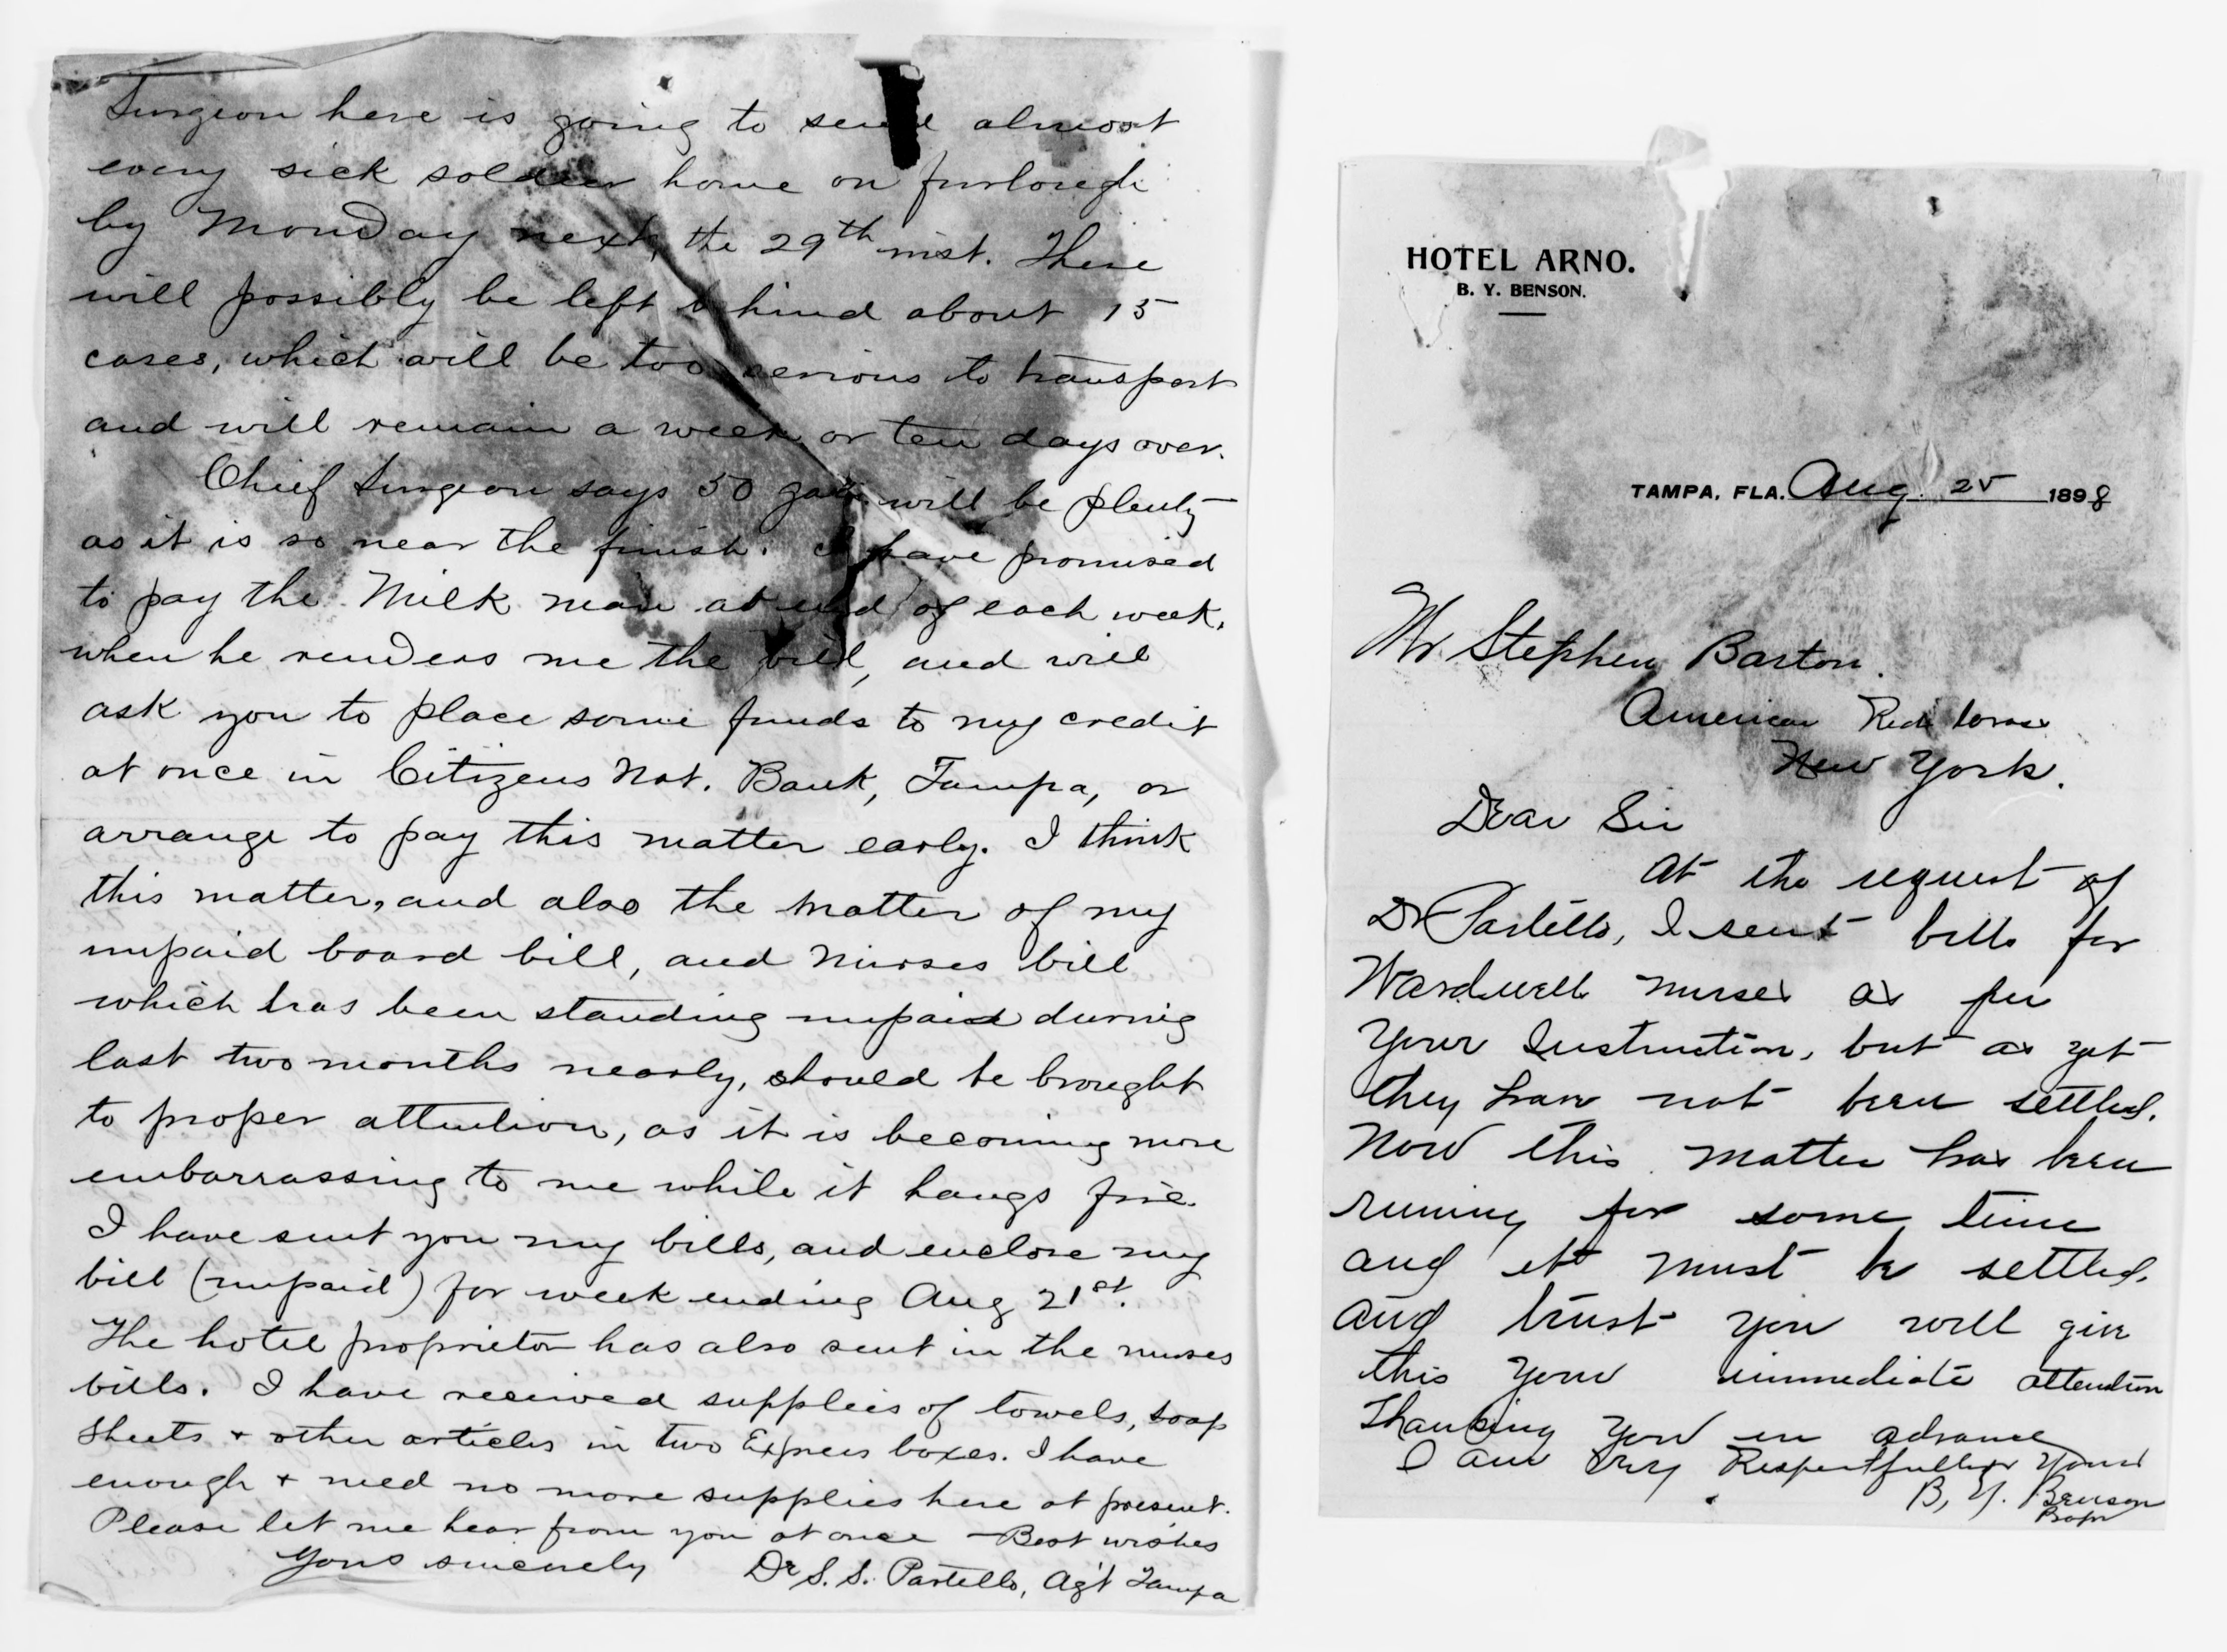 Surgeon here is going to send almost
every sick soldier home on furlough
by Monday next, the 29th inst. There
will possibly be left behind about 15
cases, which will be too serious to transport
and will remain a week or ten days over.
Chief Surgeon says 50 gals will be plenty
as it is so near the finish. I have promised
to pay the Milk man at end of each week,
when he renders me the bill, and will
ask you to place some funds to my credit
at once in Citizens Nat. Bank, Tampa, or
arrange to pay this matter early. I think
this matter, and also the matter of my
unpaid board bill, and Nurses bill
which has been standing unpaid during
last two months nearly, should be brought
to proper attention, as it is becoming more
embarrassing to me while it hangs fire.
I have sent you my bills, and enclose my
bill (unpaid) for week ending Aug 21st.
The hotel proprietor has also sent in the nurses
bills. I have received supplies of towels, soap
sheets + other articles in two Express boxes. I have
enough + need no more supplies here at present.
Please let me hear from you at once — Best wishes
Yours sincerely Dr S. S. Partello, Ag't Tampa
HOTEL ARNO.
B. Y. BENSON.
TAMPA, FLA. Aug. 25 1898
Mr Stephen Barton
American Red Cross
New York.
Dear Sir
At the request of
Dr Partello, I sent bills for
Wardwell nurses as per
Your Instruction, but as yet
they have not been settled.
Now this matter has been
runing for some time
and it must be settled.
and trust you will give
this your immediate attention
Thanking you in advance
I am Very Respectfully Yours
B. Y. Benson
Propr